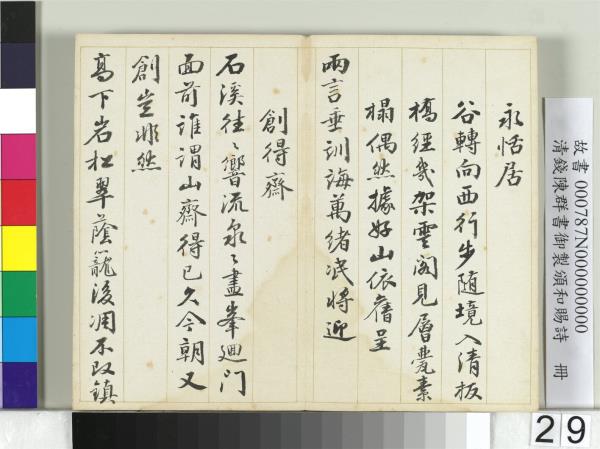 永恬居
谷轉向西行步隨境入清板
橋經幾架雲閣見層甍素
榻偶然據好山依舊呈
兩言垂訓誨萬緒泯將迎
創得齋
石溪往〻響流泉〻盡峯廻門
面前誰謂山齋得已久今朝又
創豈非然
高下岩松翠蔭籠後凋不改鎮
故書 000787N000000000
清錢陳群書御製頒和賜詩 冊
29